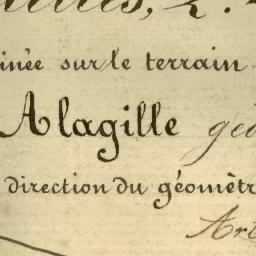 inée sur le terrain
Alagille gé
direction du géomètr
Art